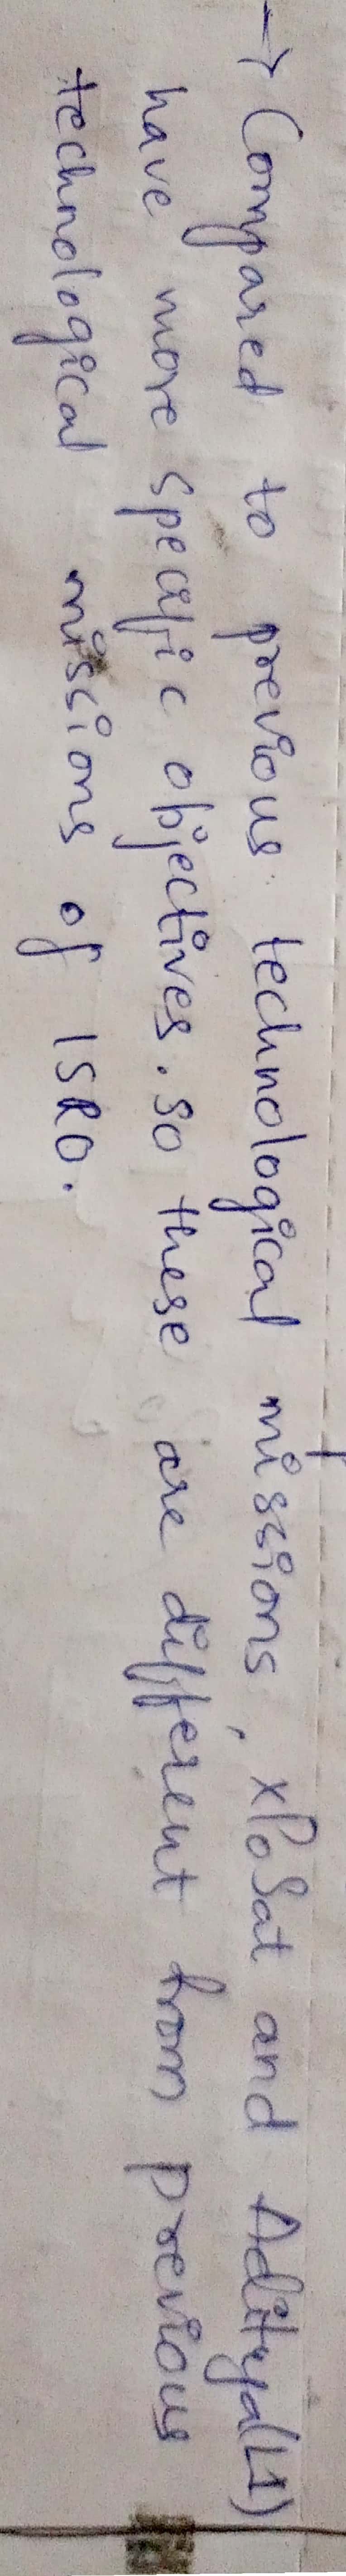 → Compared to previous technological missions, xPoSat and Aditya(L1)
have more specific objectives. so these are different from previous
technological missions of ISRO.